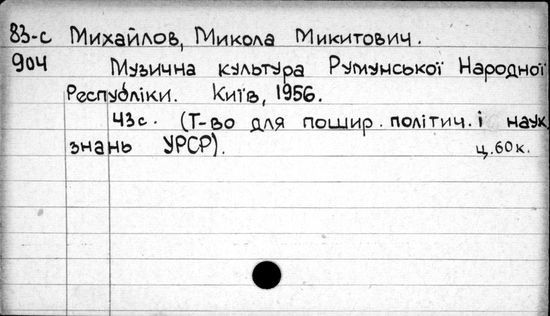 83-с Михайлов, Микола Микитович.
904 Музична культура Румунської Народної
Республіки. Київ, 1956.
43с. (Т-во для пошир. політич. і наук.
знань УРСР). ц.60к.